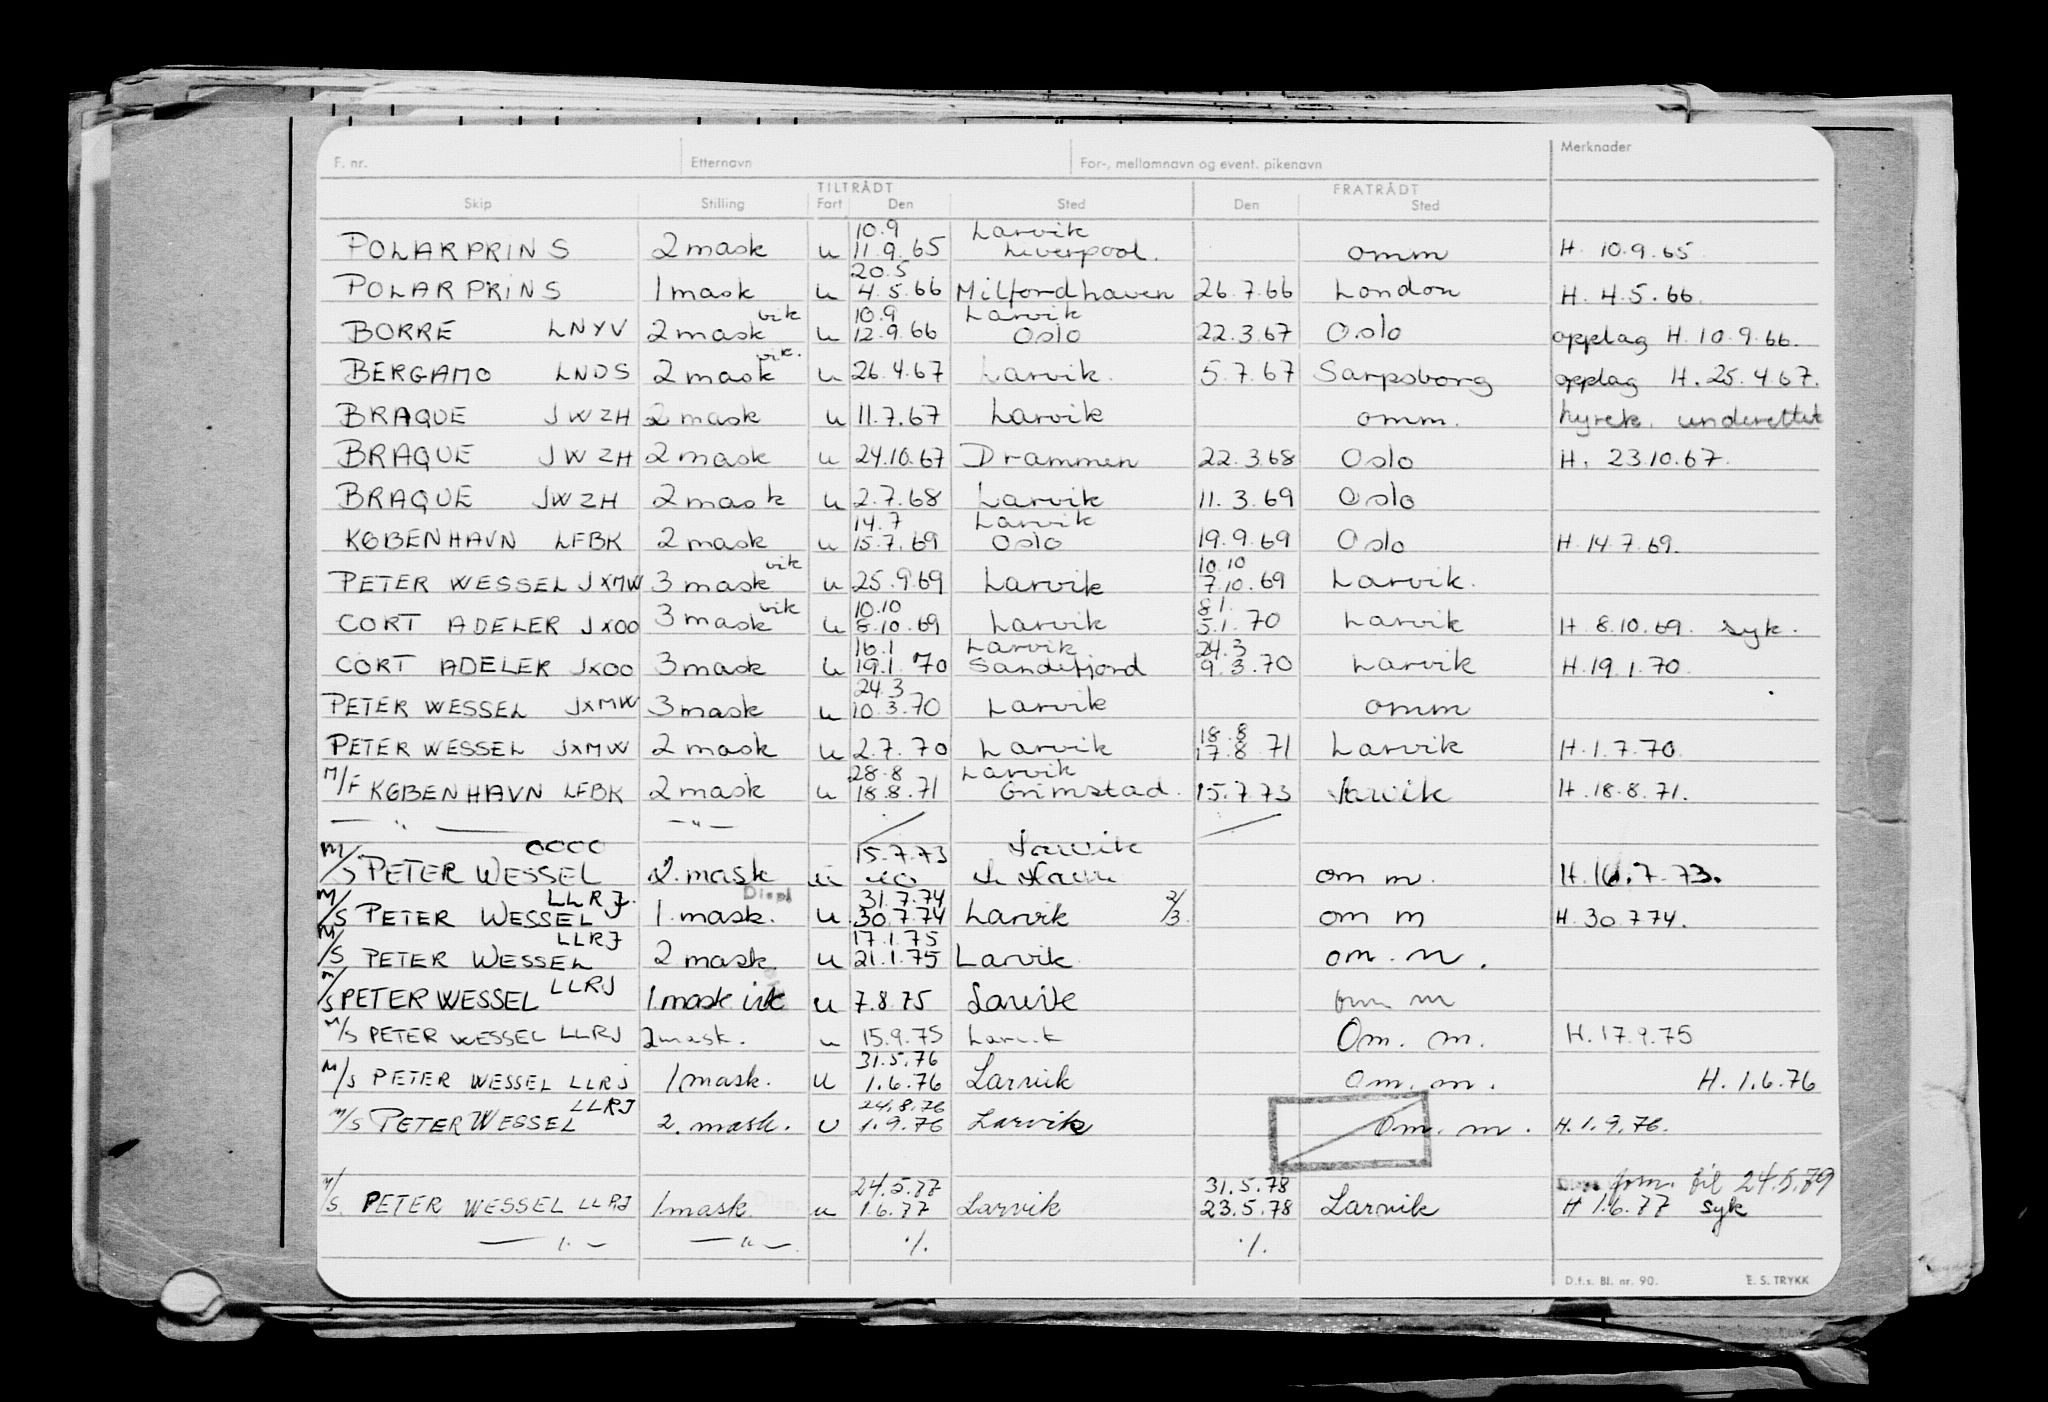 F. nr. Etternavn For-, mellomnavn og event. pikenavn Merknader
TILTRÅDT FRATRÅDT
Skip Stilling Fart Den Sted Den Sted
10.9 Larvik
POLARPRINS 2 mask u 11.9.65 Liverpool. omm H. 10.9.65
20.5
POLARPRINS 1 mask u 4.5.66 Milfordhaven 26.7.66 London H. 4.5.66.
vik 10.9 Larvik
BORRE LNYV 2 mask u 12.9.66 Oslo 22.3.67 Oslo opplag H. 10.9.66.
vik.
BERGAMO LNDS 2 mask u 26.4.67 Larvik. 5.7.67 Sarpsborg opplag H. 25.4.67.
BRAQUE JWZH 2 mask u 11.7.67 Larvik omm. hyrek. underettet
BRAQUE JWZH 2 mask u 24.10.67 Drammen 22.3.68 Oslo H. 23.10.67.
BRAQUE JWZH 2 mask u 2.7.68 Larvik 11.3.69 Oslo
14.7 Larvik
KØBENHAVN LFBK 2 mask u 15.7.69 Oslo 19.9.69 Oslo H. 14.7.69.
vik 10.10
PETER WESSEL JXMW 3 mask u 25.9.69 Larvik 7.10.69 Larvik.
vik 10.10 8.1.
CORT ADELER JXOO 3 mask u 8.10.69 Larvik 5.1.70 Larvik H. 8.10.69. syk.
16.1 Larvik 24.3
CORT ADELER JXOO 3 mask u 19.1.70 Sandefjord 9.3.70 Larvik H. 19.1.70.
24.3
PETER WESSEL JXMW 3 mask u 10.3.70 Larvik omm
18.8
PETER WESSEL JXMW 2 mask u 2.7.70 Larvik 17.8.71 Larvik H. 1.7.70.
28.8 Larvik
M/F KØBENHAVN LFBK 2 mask u 18.8.71 Grimstad. 15.7.73 Larvik H. 18.8.71.
— " — — " — / /
OOOO 15.7.73 Larvik
M/S PETER WESSEL 2. mask u om m. H. 16.7.73.
LLRJ. Displ 31.7.74 2/3
M/S PETER WESSEL 1. mask. u 30.7.74 Larvik om m H. 30.7.74.
LLRJ 17.1.75
M/S PETER WESSEL 2 mask u 21.1.75 Larvik om. m.
M/S PETER WESSEL LLRJ 1. mask vik u 7.8.75 Larvik om m
M/S PETER WESSEL LLRJ 2 mask. u 15.9.75 Larvik Om. m. H. 17.9.75
31.5.76
M/S PETER WESSEL LLRJ 1 mask. u 1.6.76 Larvik Om. m. H. 1.6.76
LLRJ 24.8.76
M/S PETER WESSEL 2. mask. u 1.9.76 Larvik Om. m. H. 1.9.76.
24.5.77 31.5.78 Disp. til 24.5.79
M/S. PETER WESSEL LLRJ 1 mask. u 1.6.77 Larvik 23.5.78 Larvik H 1.6.77 syk
— " — — " — ./. ./.
D.f.s. Bl. nr. 90. E. S. TRYKK